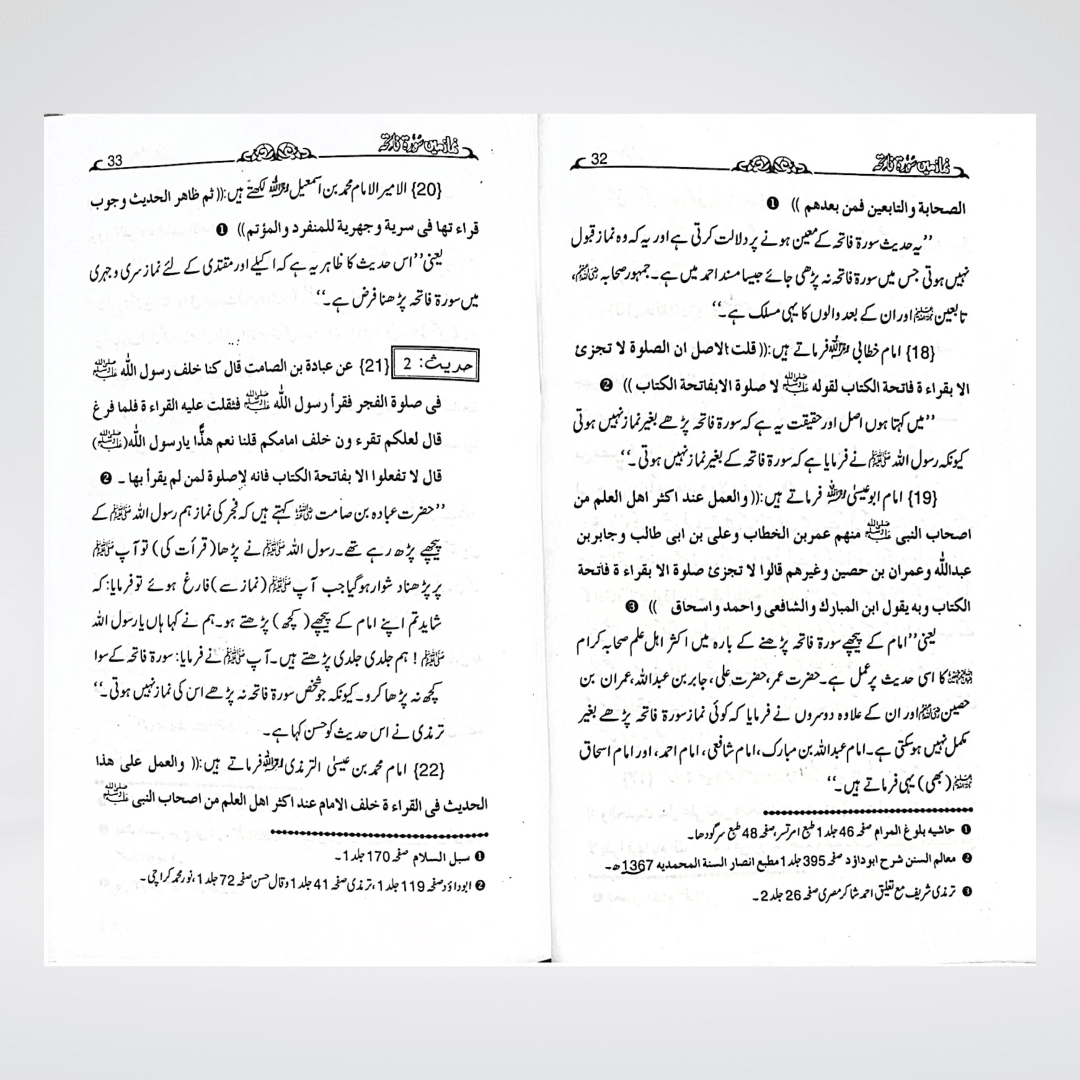 نماز میں سورۃ فاتحہ
32
الصحابة والتابعين فمن بعدهم )) ❶
’’یہ حدیث سورۃ فاتحہ کے معین ہونے پر دلالت کرتی ہے اور یہ کہ وہ نماز قبول
نہیں ہوتی جس میں سورۃ فاتحہ نہ پڑھی جائے جیسا مسند احمد میں ہے۔ جمہور صحابہ رضی اللہ عنہم،
تابعین رحمہم اللہ اور ان کے بعد والوں کا یہی مسلک ہے۔‘‘
{18} امام خطابی رحمہ اللہ فرماتے ہیں:(( قلت الاصل ان الصلوة لا تجزئ
الا بقراء ة فاتحة الكتاب لقوله ﷺ لا صلوة الابفاتحة الكتاب )) ❷
’’میں کہتا ہوں اصل اور حقیقت یہ ہے کہ سورۃ فاتحہ پڑھے بغیر نماز نہیں ہوتی
کیونکہ رسول اللہ ﷺ نے فرمایا ہے کہ سورۃ فاتحہ کے بغیر نماز نہیں ہوتی ۔‘‘
{19} امام ابو عیسیٰ رحمہ اللہ فرماتے ہیں:(( والعمل عند اكثر اهل العلم من
اصحاب النبى ﷺ منهم عمر بن الخطاب وعلى بن ابى طالب وجابر بن
عبدالله وعمران بن حصين وغيرهم قالوا لا تجزئ صلوة الا بقراء ة فاتحة
الكتاب وبه يقول ابن المبارك والشافعى واحمد واسحاق )) ❸
یعنی’’امام کے پیچھے سورۃ فاتحہ پڑھنے کے بارہ میں اکثر اہل علم صحابہ کرام
رضی اللہ عنہم کا اسی حدیث پر عمل ہے۔ حضرت عمر، حضرت علی، جابر بن عبداللہ، عمران بن
حصین رضی اللہ عنہم اور ان کے علاوہ دوسروں نے فرمایا کہ کوئی نماز سورۃ فاتحہ پڑھے بغیر
مکمل نہیں ہوسکتی ہے۔ امام عبداللہ بن مبارک، امام شافعی، امام احمد، اور امام اسحاق
رحمہم اللہ (بھی) یہی فرماتے ہیں۔‘‘
❶ حاشیہ بلوغ المرام صفحہ 46 جلد 1 طبع امرتسر، صفحہ 48 طبع سرگودھا۔
❷ معالم السنن شرح ابوداؤد صفحہ 395 جلد 1 مطبع انصار السنة المحمديه 1367ھ۔
❸ ترمذی شریف مع تعلیق احمد شاکر مصری صفحہ 26 جلد 2۔
نماز میں سورۃ فاتحہ
33
{20} الامیر الامام محمد بن اسمعیل رحمہ اللہ لکھتے ہیں:(( ثم ظاهر الحديث وجوب
قراء تها فى سرية وجهرية للمنفرد والمؤتم)) ❶
یعنی’’اس حدیث کا ظاہر یہ ہے کہ اکیلے اور مقتدی کے لئے نماز سری و جہری
میں سورۃ فاتحہ پڑھنا فرض ہے۔‘‘
حدیث: 2 {21} عن عبادة بن الصامت قال كنا خلف رسول الله ﷺ
فى صلوة الفجر فقرأ رسول الله ﷺ فثقلت عليه القراء ة فلما فرغ
قال لعلكم تقرء ون خلف امامكم قلنا نعم هذًّا يارسول الله(ﷺ)
قال لا تفعلوا الا بفاتحة الكتاب فانه لاصلوة لمن لم يقرأ بها ۔ ❷
’’حضرت عبادہ بن صامت رضی اللہ عنہ کہتے ہیں کہ فجر کی نماز ہم رسول اللہ ﷺ کے
پیچھے پڑھ رہے تھے۔ رسول اللہ ﷺ نے پڑھا (قرأت کی) تو آپ ﷺ
پر پڑھنا دشوار ہوگیا جب آپ ﷺ (نماز سے) فارغ ہوئے تو فرمایا: کہ
شاید تم اپنے امام کے پیچھے( کچھ) پڑھتے ہو۔ ہم نے کہا ہاں یا رسول اللہ
ﷺ ! ہم جلدی جلدی پڑھتے ہیں۔ آپ ﷺ نے فرمایا: سورۃ فاتحہ کے سوا
کچھ نہ پڑھا کرو۔ کیونکہ جو شخص سورۃ فاتحہ نہ پڑھے اس کی نماز نہیں ہوتی۔‘‘
ترمذی نے اس حدیث کو حسن کہا ہے۔
{22} امام محمد بن عیسیٰ الترمذی رحمہ اللہ فرماتے ہیں:(( والعمل على هذا
الحديث فى القراء ة خلف الامام عند اكثر اهل العلم من اصحاب النبى ﷺ
❶ سبل السلام صفحہ 170 جلد 1۔
❷ ابوداؤد صفحہ 119 جلد 1، ترمذی صفحہ 41 جلد 1 وقال حسن صفحہ 72 جلد 1، نور محمد کراچی۔